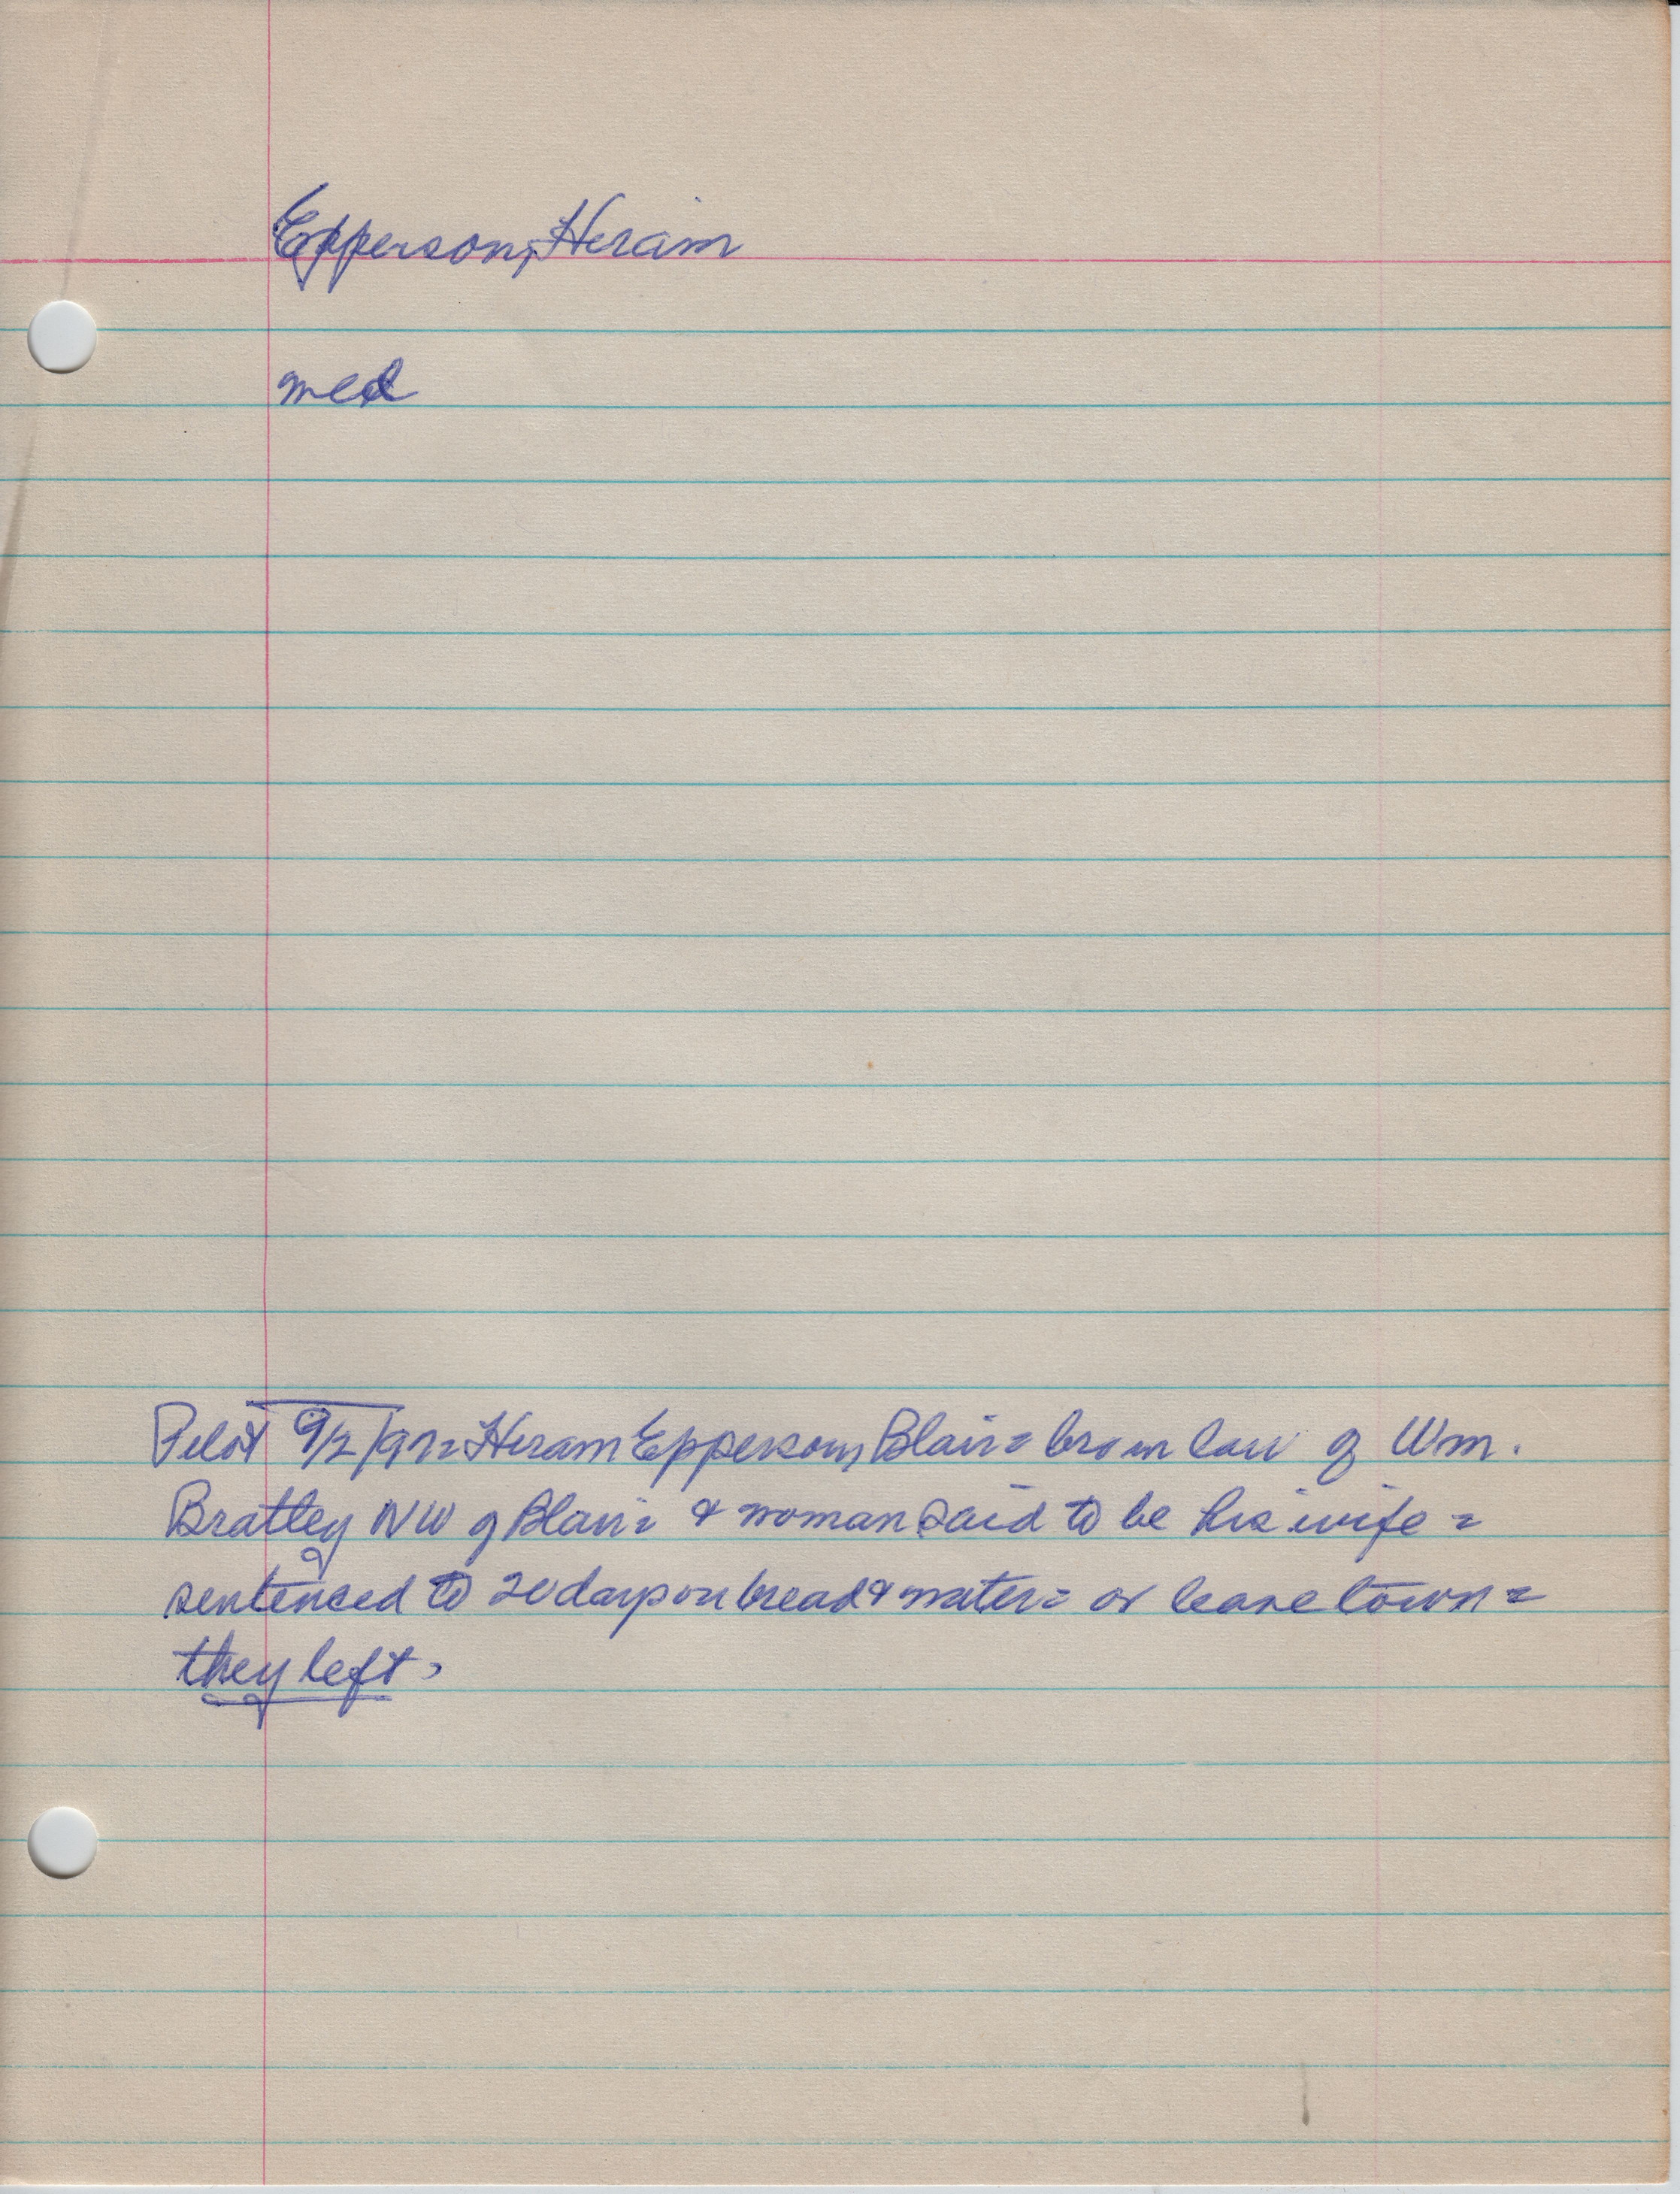 Epperson, Hiram
med
Pilot 9/2/97= Hiram Epperson, Blair= bro in law of Wm.
Bratley NW of Blair= & woman said to be his wife =
sentenced to 20 days on bread & water= or leave town=
they left.